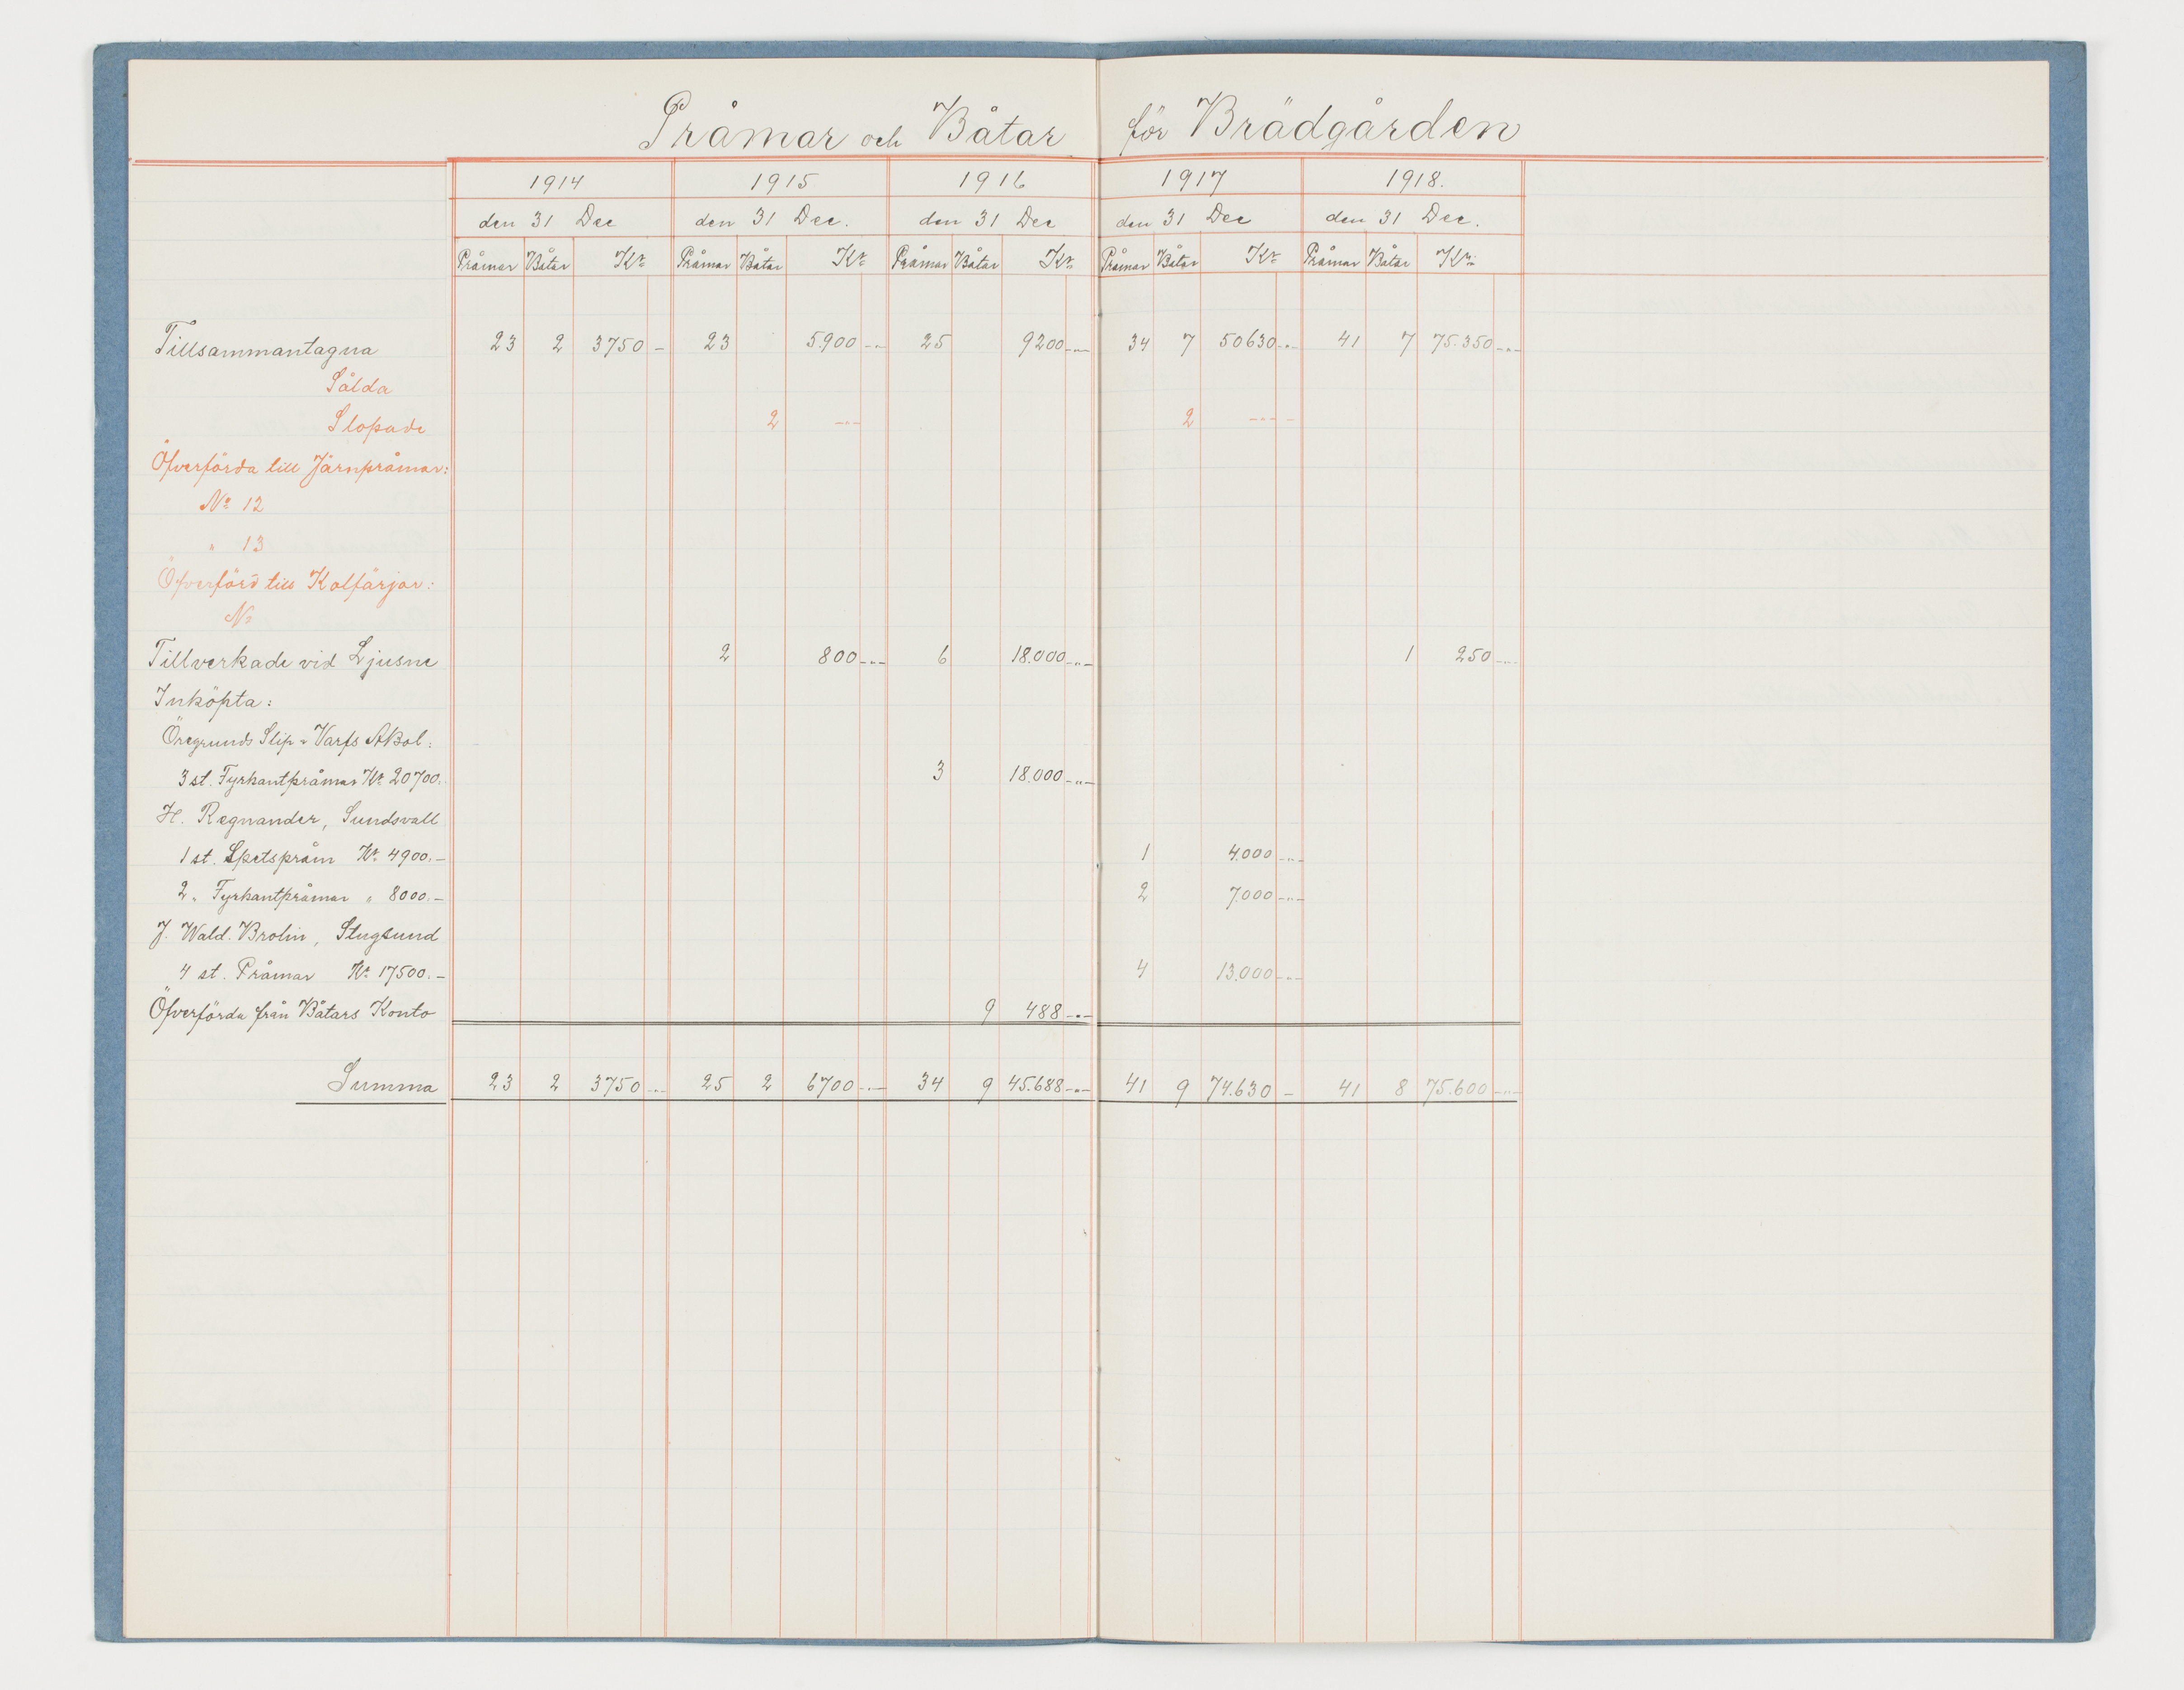 Pråmar och Båtar för Brädgården
1914 1915 1916 1917 1918.
den 31 Dec den 31 Dec. den 31 Dec den 31 Dec den 31 Dec.
Pråmar Båtar Kr Pråmar Båtar Kr Pråmar Båtar Kr Pråmar Båtar Kr Pråmar Båtar Kr
Tillsammantagna 23 2 3750 - 23 5.900 -"- 25 9200 -"- 34 7 50630 -"- 41 7 75.350 -"-
Sålda
Slopade 2 -"- 2 -"-
Öfverförda till Järnpråmar:
No 12
" 13
Öfverförd till Kolfärjor:
No
Tillverkade vid Ljusne 2 800 -"- 6 18.000 -"- 1 250 -"-
Inköpta:
Öregrunds Slip- Varfs ABol:
3 st. Fyrkantpråmar Kr 20700.- 3 18.000 -"-
H. Regnander, Sundsvall
1 st. Spetspråm Kr. 4900.- 1 4.000 -"-
2 " Fyrkantpråmar " 8000.- 2 7.000 -"-
J. Wald. Brolin, Stugsund
4 st. Pråmar Kr 17500.- 4 13.000 -"-
Öfverförda från Båtars Konto 9 488 -"-
Summa 23 2 3750 -"- 25 2 6700 -"- 34 9 45.688 -"- 41 9 74.630 - 41 8 75.600 -"-